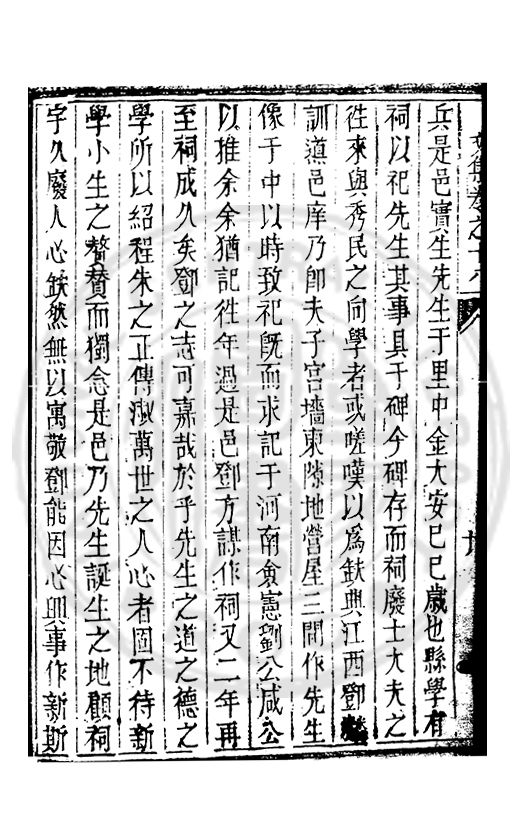 兵是邑實生先生于里中金大安己巳歲也縣學有
祠以祀先生其事具于碑今碑存而祠廢士大夫之
徃來與秀民之向學者或嗟嘆以爲缺典江西鄧
訓導邑庠乃卽夫子宮墻東隙地營屋三間作先生
像于中以時致祀旣而求記于河南僉憲劉公咸公
以推余余猶記徃年過是邑鄧方謀作祠又二年再
至祠成久矣鄧之志可嘉哉於乎先生之道之德之
學所以紹程朱之正傳淑萬世之人心者固不待新
學小生之贅賛而獨念是邑乃先生誕生之地顧祠
宇久廢人心缺然無以寓敬鄧能因心興事作新斯